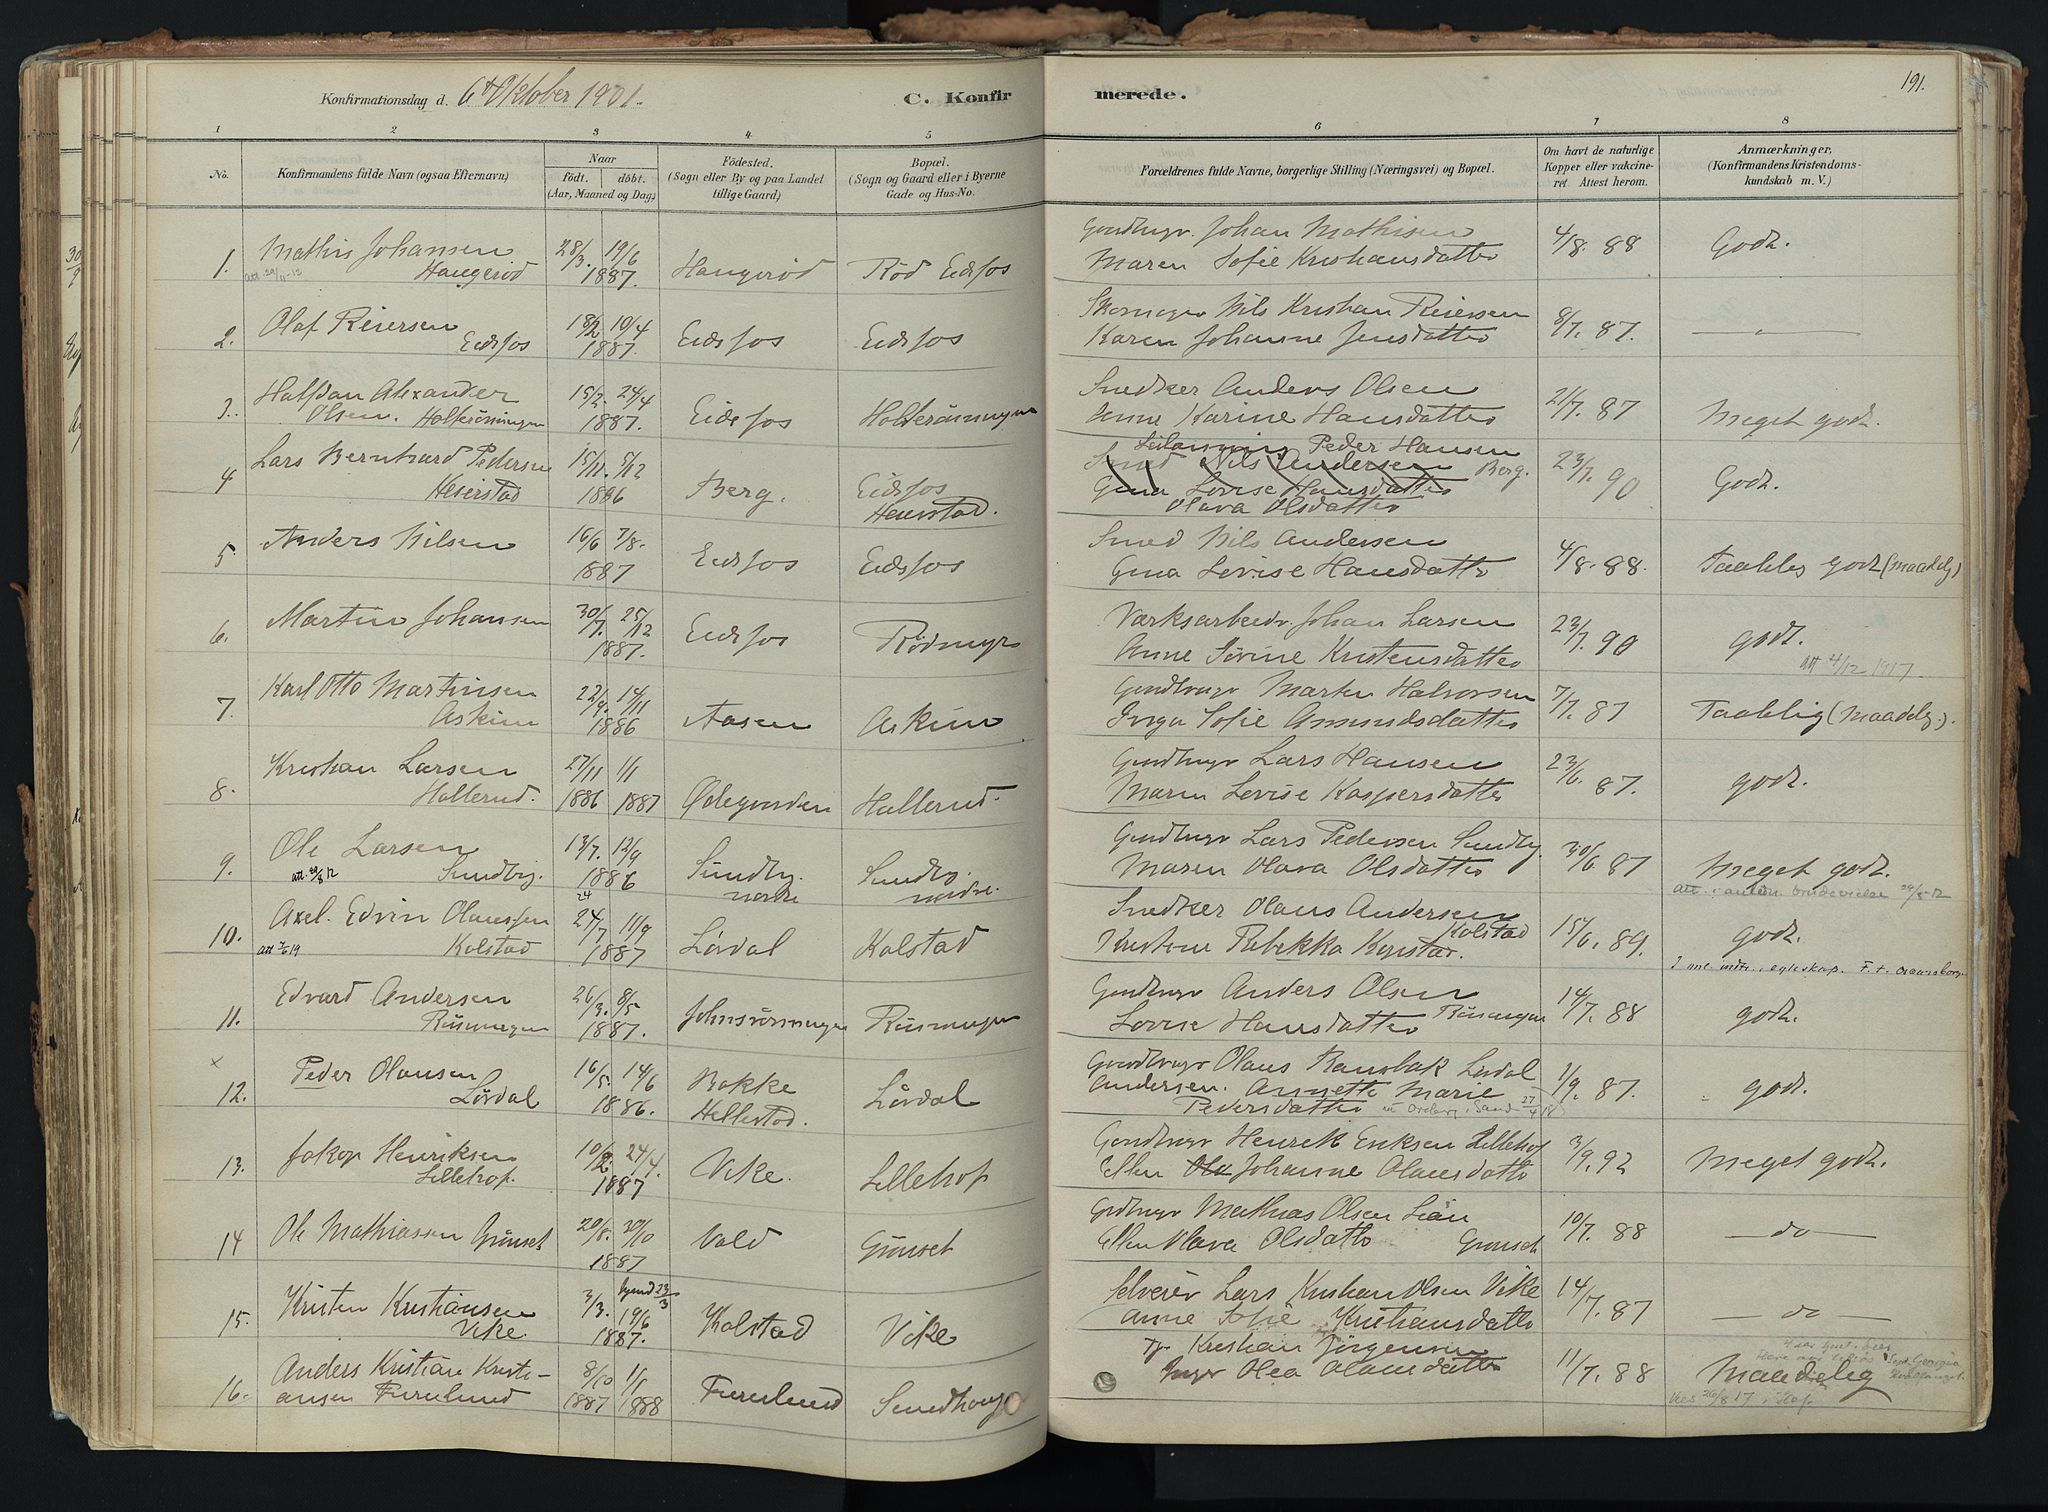 Konfirmationsdag d. 6te Oktober 1901.
C. Konfirmerede.
191.
1 2 3 4 5 6 7 8
No.
Konfirmandens fulde Navn (ogsaa Efternavn)
Naar
födt. döbt.
(Aar, Maaned og Dag.)
Födested.
(Sogn eller By og paa Landet
tillige Gaard)
Bopæl.
(Sogn og Gaard eller i Byerne
Gade og Hus-No.
Forældrenes fulde Navne, borgerlige Stilling (Næringsvei) og Bopæl.
Om havt de naturlige
Kopper eller vakcine-
ret. Attest herom.
Anmærkninger.
(Konfirmandens Kristendoms-
kundskab m. V.)
1. Mathis Johansen
Haugeröd
28/3. 19/6
1887.
Haugeröd
Röd Eidsfos
Johan Mathisen
Maren Sofie Kristiansdatter
4/8. 88
Godt.
2. Olaf Reiersen
Eidsfos
18/2 10/4
1887.
Eidsfos
Eidsfos
Skomager Nils Kristian Reiersen
Karen Johanne Jensdatter
8/7. 87.
— „ —
3. Halfdan Alexander
Olsen.
15/2. 24/4
1887.
Eidsfos
Snedker Anders Olsen
Anne Karine Hansdatter
2/7. 87
Meget godt.
4 Lars Bernhard Pedersen
Heierstad
15/11. 5/12
1886
Berg.
Eidsfos
Heierstad.
Peder Hansen
Smed Nils Andersen Berg.
Gina Lovise Hansdatter
Olava Olsdatter
23/7. 90
Godt.
5. Anders Nilsen
16/6 7/8.
1887
Eidsfos
Eidsfos
Smed Nils Andersen
Gina Lovise Hansdatter
4/8. 88.
Taalelig godt (maadelig)
6. Martin Johansen
30/7. 25/12
1887.
Eidsfos
Rödmyr
Værksarbeider Johan Larsen
Anne Sörine Kristensdatter
23/7. 90
godt.
att 4/12 1917.
7. Karl Otto Martinsen
Askim
22/9. 14/11
1886
Aasen
Askim
Martin Halvorsen
Inga Sofie Amundsdatter
7/7. 87
Taalelig (maadelig).
8. Kristian Larsen
Hallerud.
27/11 1/1
1886 1887
Ødegaarden
Hallerud.
Lars Hansen
Maren Lovise Kaspersdatter
23/6. 87.
godt.
9. Ole Larsen
Sundby.
13/7. 12/9
1886
Sundby.
nordre
Sundby.
nordre.
Lars Pedersen Sundby.
Maren Olava Olsdatter
30/6. 87
Meget godt.
10. Axel Edvin Olaussen
Kolstad
att 7/6 19
24
24/7 11/9
1887
Lövdal
Kolstad
Snedker Olaus Andersen
Kolstad
Rebekka
15/6. 89.
godt.
11. Edvard Andersen
26/3. 8/5
1887.
Anders Olsen
Lovise Hansdatter
14/7. 88
godt.
x
12. Peder Olausen
Lövdal
16/5. 14/6
1886.
Bakke
Hillestad.
Lövdal
Olaus Lövdal
Andersen. Annette Marie
Pedersdatter
1/9. 87.
godt.
13. Jakop Henriksen
Lillehof.
10/2. 24/4.
1887
Vike.
Lillehof
Henrik Eriksen Lillehof
Ellen Johanne Olausdatter
3/9. 92
Meget godt.
14 Ole Mathiassen Grönset
20/8. 30/10
1887
Vold
Grönset
Mathias Olsen
Ellen Olava Olsdatter Grönset
10/7. 88
— do —
15. Kristen Kristiansen
Vike
3/3. 19/6
1887.
Kolstad
Vike
Lars Kristian Olsen Vike
Anne Sofie Kristiansdatter
14/7. 87
— do —
16. Anders Kristian Kristi-
ansen Furulund
8/10 1/1
1887 1888
Furulund
Kristian Jörgensen
Olea Olausdatter
11/7. 88
Maadelig